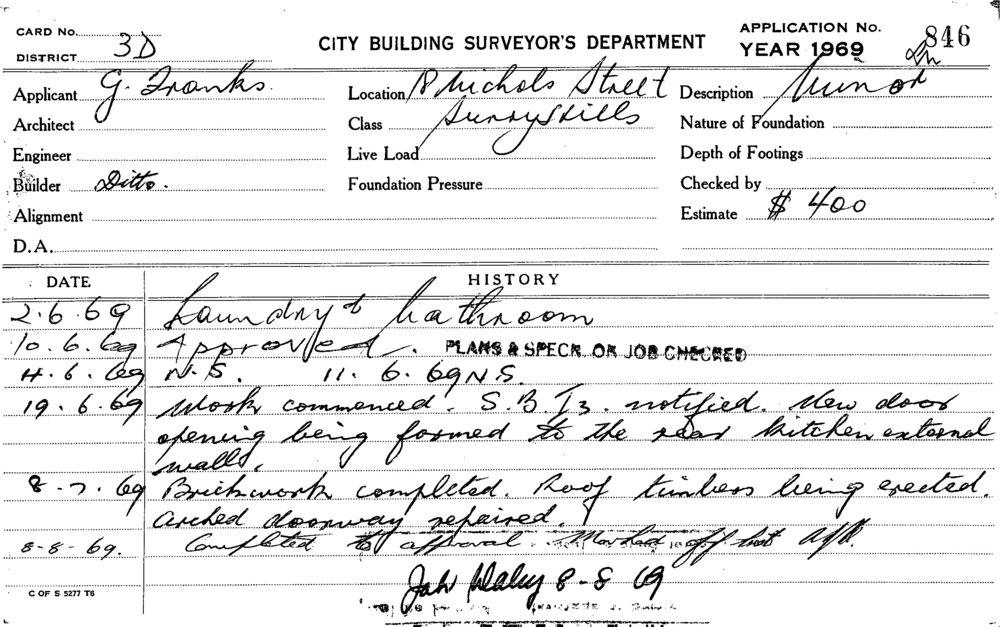 CARD No.
DISTRICT 3D
CITY BUILDING SURVEYOR'S DEPARTMENT
APPLICATION No. 846
YEAR 1969
Applicant G. Franks.
Location 18 Nichols Street
Description Minor
Architect
Class Surry Hills
Nature of Foundation
Engineer
Live Load
Depth of Footings
Builder Ditto.
Foundation Pressure
Checked by
Alignment
Estimate $ 400
D.A.
DATE HISTORY
2.6.69 Laundry & bathroom
10.6.69 Approved. PLANS & SPECN. ON JOB CHECKED
4.6.69 N.S. 11.6.69 N.S.
19.6.69 Work commenced. S.B. notified. New door
opening being formed to the rear kitchen external
walls.
8-7.69 Brickwork completed. Roof timbers being erected.
Arched doorway repaired.
8-8-69. Completed to approval. Marked off
8-8 69
C OF S 5277 T6